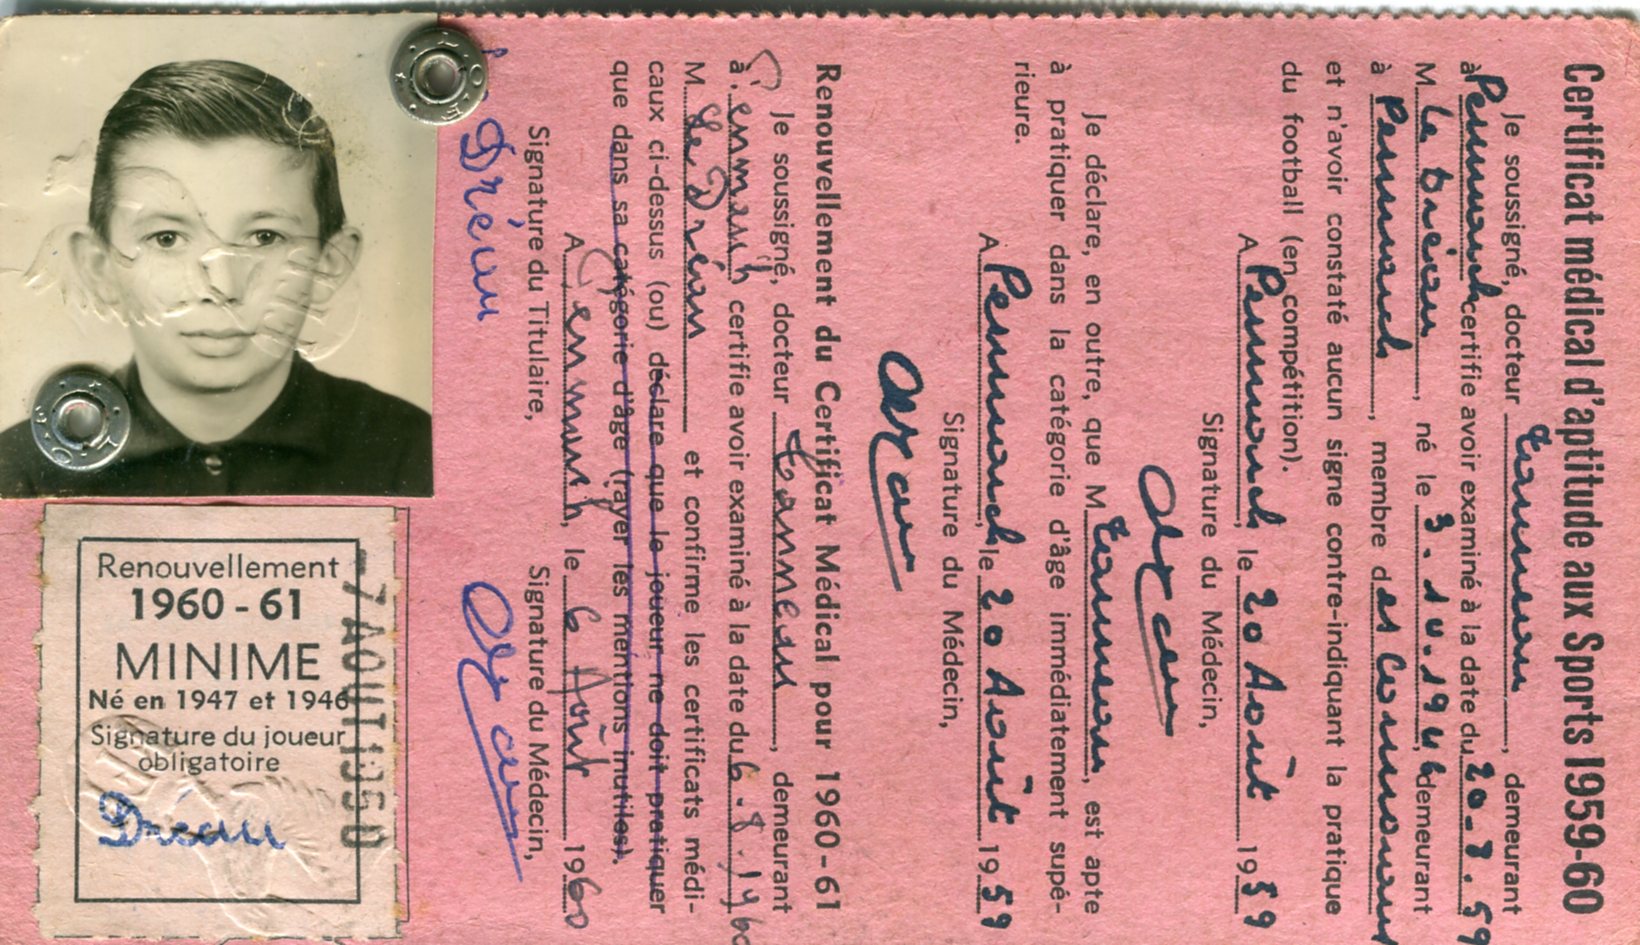 Certificat médical d'aptitude aux Sports 1959-60
Je soussigné, docteur Tanneau, demeurant
à Penmarch certifie avoir examiné à la date du 20.8.59
M Le Dréau, né le 3.10.1946 demeurant
à Penmarch, membre des
et n'avoir constaté aucun signe contre-indiquant la pratique
du football (en compétition).
A Penmarch, le 20 Août 1959
Signature du Médecin,
Je déclare, en outre, que M Tanneau, est apte
à pratiquer dans la catégorie d'âge immédiatement supé-
rieure.
A Penmarch, le 20 Août 1959
Signature du Médecin,
Renouvellement du Certificat Médical pour 1960-61
Je soussigné, docteur Tanneau, demeurant
à Penmarch certifie avoir examiné à la date du 6.8.1960
M Le Dréau et confirme les certificats médi-
caux ci-dessus (ou) déclare que le joueur ne doit pratiquer
que dans sa catégorie d'âge (rayer les mentions inutiles).
A Penmarch, le 6 Août 1960
Signature du Titulaire, Signature du Médecin,
Dréau
Renouvellement
1960-61
MINIME
Né en 1947 et 1946
Signature du joueur
obligatoire
Dréau
-7 AOUT 1960